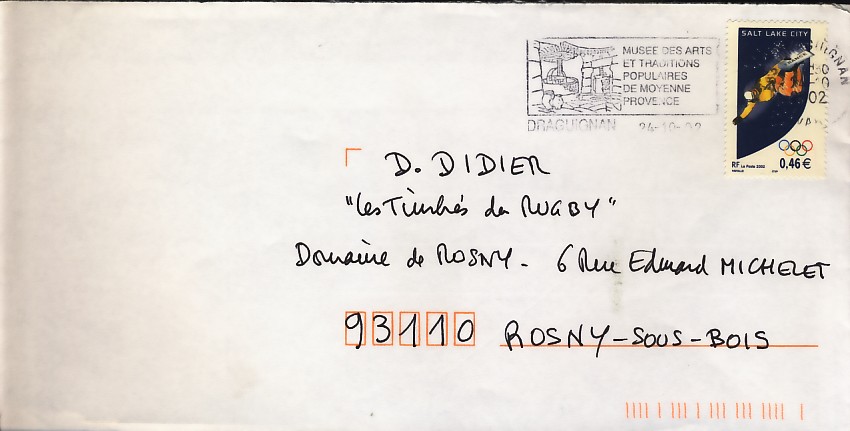 MUSEE DES ARTS
ET TRADITIONS
POPULAIRES
DE MOYENNE
PROVENCE
DRAGUIGNAN 24-10-02
SALT LAKE CITY
RF La Poste 2002
0,46 €
D. DIDIER
"Les Timbrés du RUGBY"
Domaine de ROSNY - 6 Rue Edmond MICHELET
93110 ROSNY-SOUS-BOIS